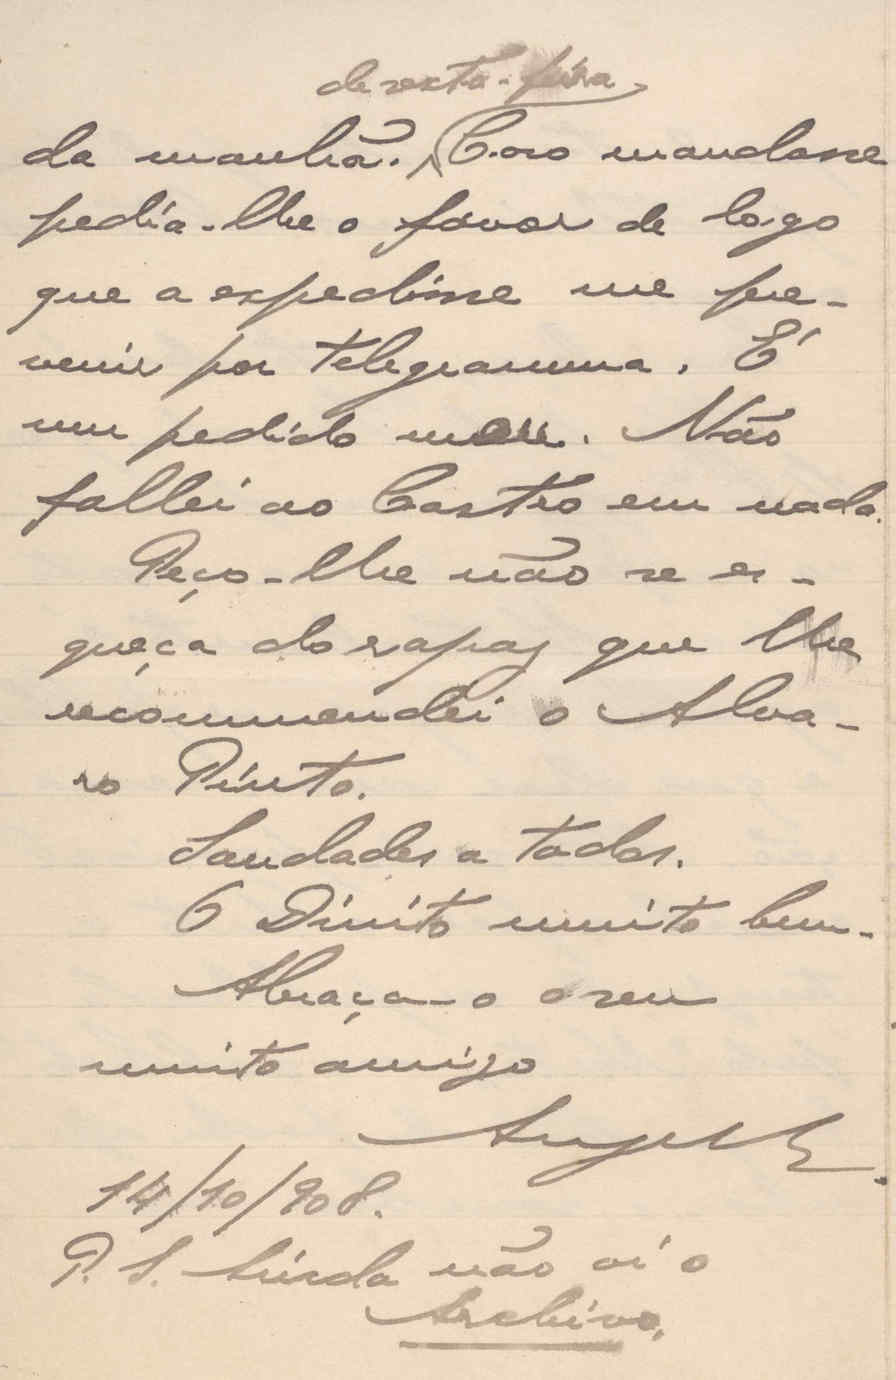 de sexta-feira
da manhã. Caso mandasse
pedia-lhe o favor de logo
que a expedisse me pre-
venir por telegramma. É
um pedido meu. Não
fallei ao Castro em nada.
Peço-lhe não se es-
queça do rapaz que lhe
recommendei o Alva-
ro Pinto.
Saudades a todos.
O Diniz muito bem.
Abraça-o o seu
muito amigo
14/10/908.
P. S. Ainda não vi o
Archivo.